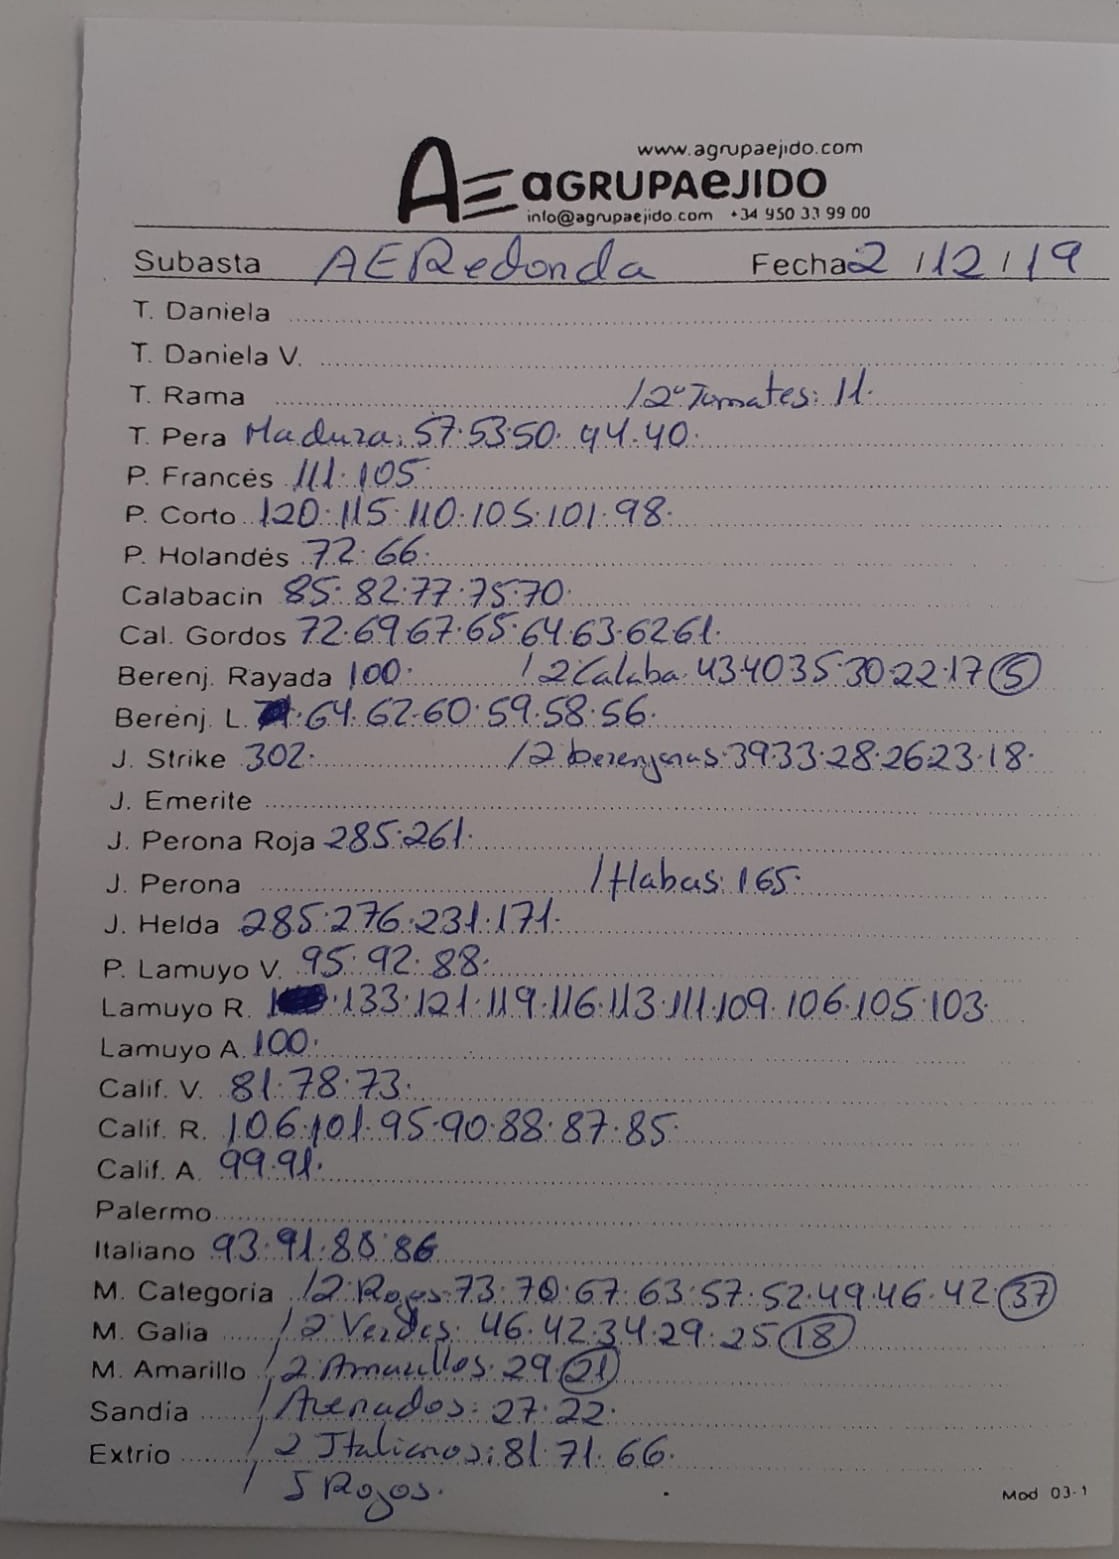 www.agrupaejido.com
AE aGRUPAeJIDO
info@agrupaejido.com +34 950 33 99 00
Subasta AERedonda Fecha 2/12/19
T. Daniela
T. Daniela V.
T. Rama / 2ª Tomates: 11.
T. Pera Madura: 57.53.50. 44.40.
P. Francés 111. 105.
P. Corto 120.115.110.105.101.98.
P. Holandés 72.66.
Calabacin 85.82.77.75.70.
Cal. Gordos 72.69 67.65.64.63.62 61.
Berenj. Rayada 100. / 2 Calaba. 43 40 35.30.22.17 (5)
Berenj. L. .64.62.60.59.58.56.
J. Strike 302. / 2 berenjenas. 39.33.28.26 23.18.
J. Emerite
J. Perona Roja 285.261.
J. Perona / Habas: 165.
J. Helda 285.276.231.171.
P. Lamuyo V. 95.92.88.
Lamuyo R. .133.121.119.116.113.111.109.106.105 103.
Lamuyo A. 100.
Calif. V. 81.78.73.
Calif. R. 106.101.95.90.88.87.85.
Calif. A. 99.91.
Palermo
Italiano 93.91.88.86
M. Categoria / 2 Rojos. 73.70.67.63.57.52.49.46.42. (37)
M. Galia / 2 Verdes. 46.42.34.29.25 (18)
M. Amarillo / 2 Amarillos. 29. (21)
Sandia / Arenados: 27.22.
Extrio / 2 Italianos: 81.71.66.
/ 5 Rojos.
Mod 03-1